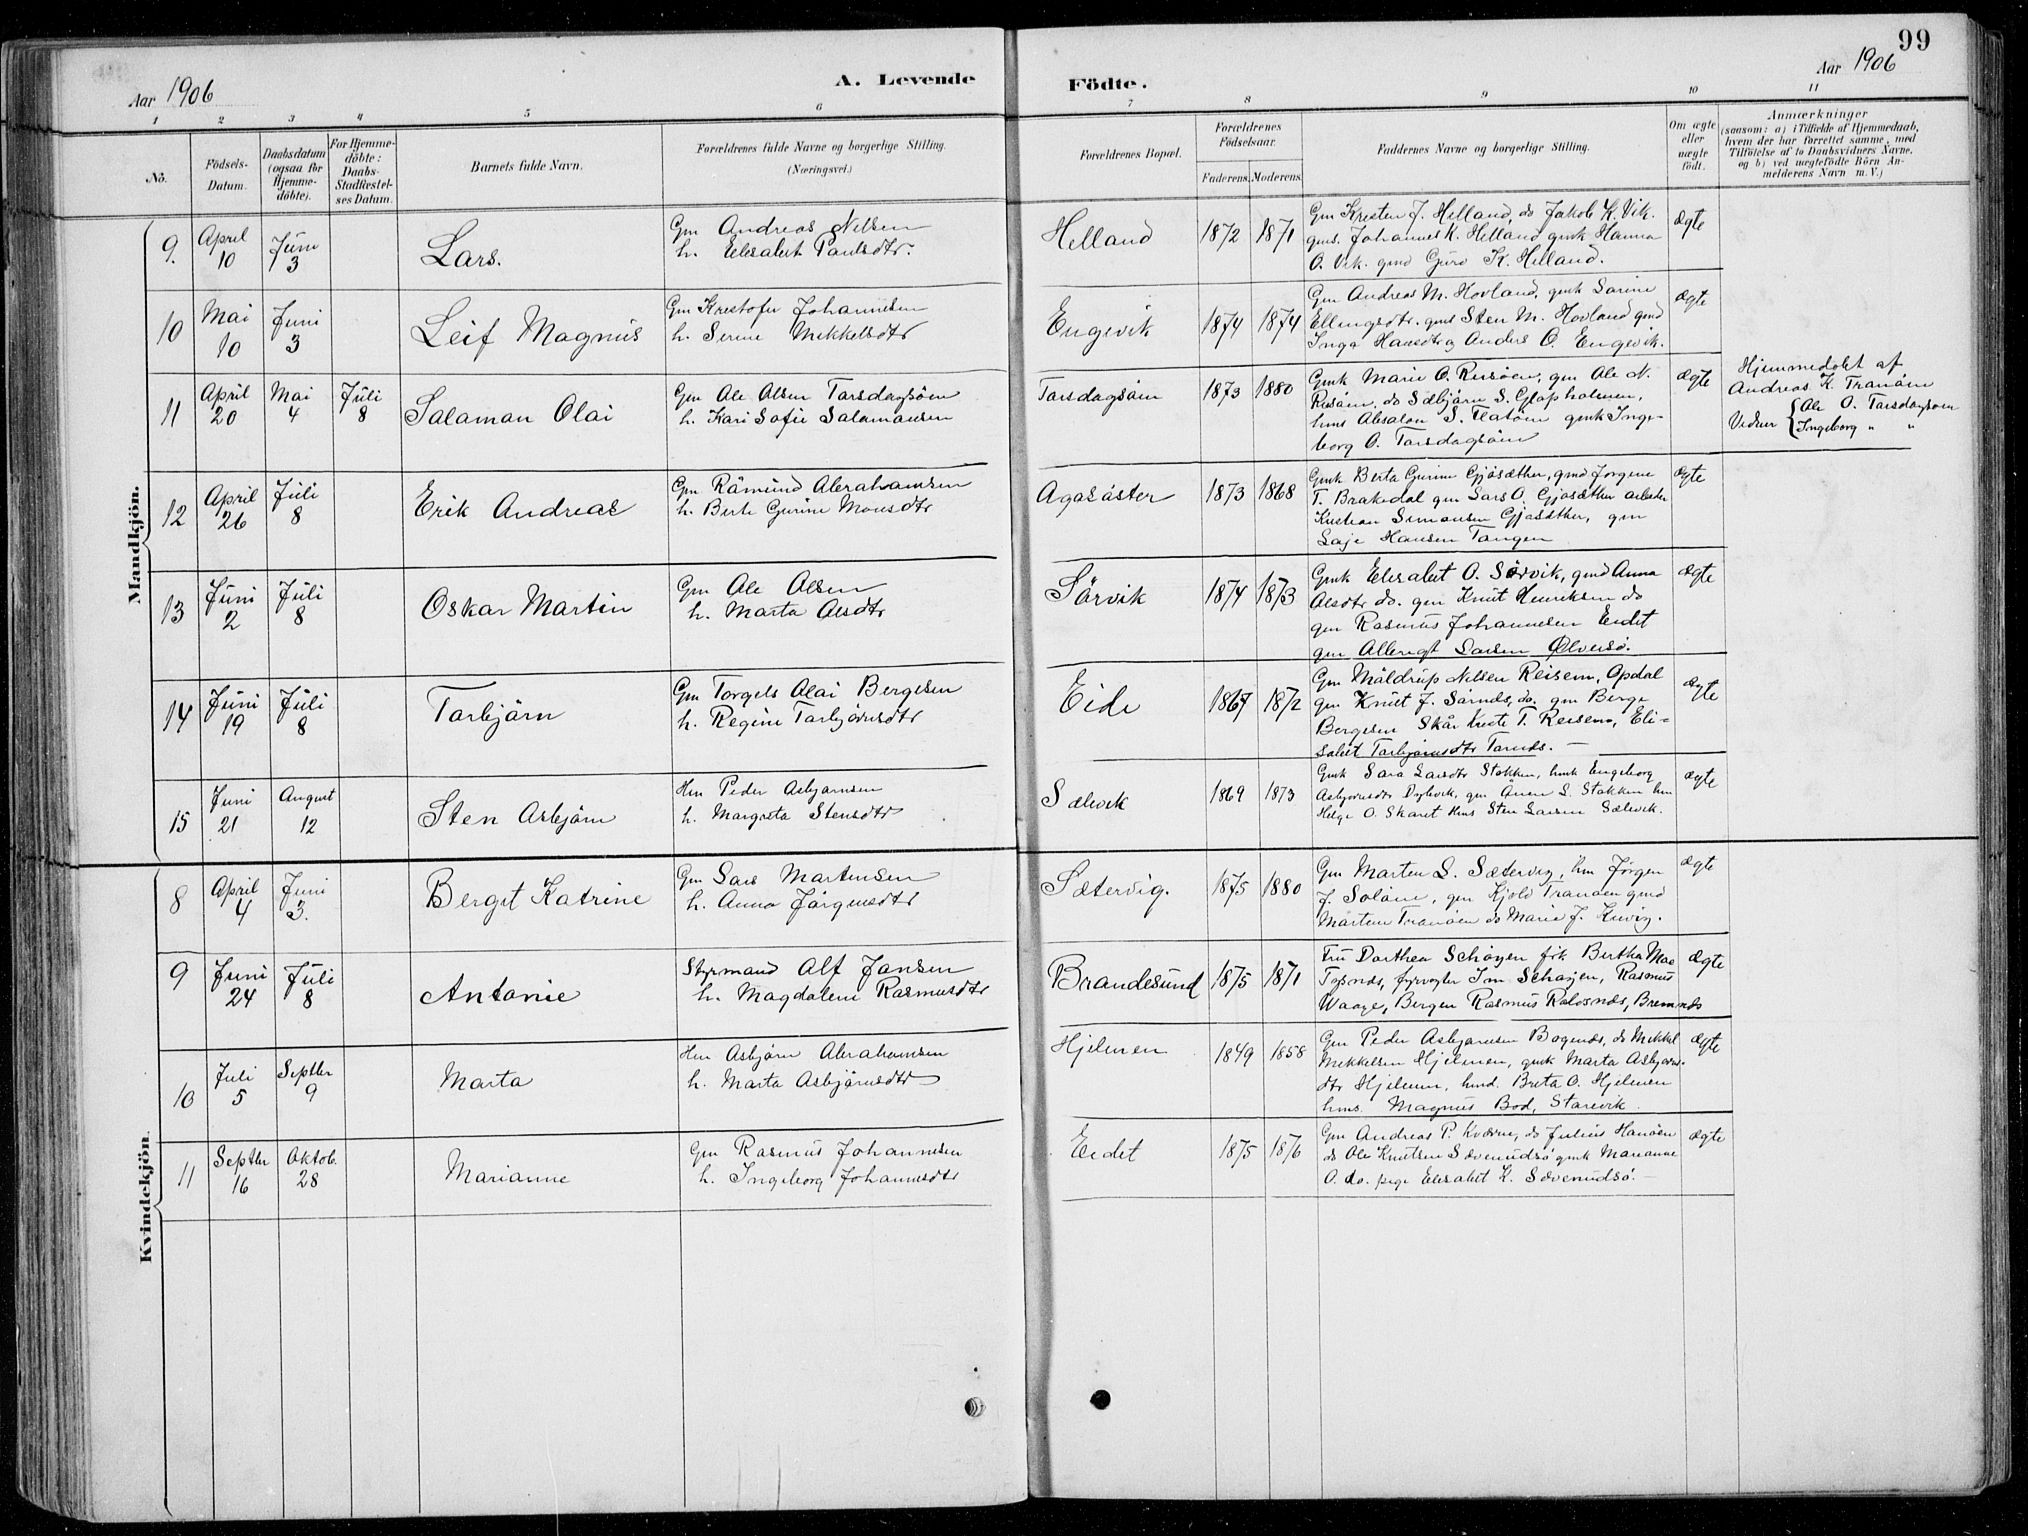 99
Aar 1906
A. Levende
Födte.
Aar 1906
1 2 3 4 5 6 7 8 9 10 11
No.
Födsels-Datum.
Daabsdatum (ogsaa for Hjemme-döbte).
For Hjemme-döbte: Daabs-Stadfæstel-ses Datum.
Barnets fulde Navn.
Forældrenes fulde Navne og borgerlige Stilling. (Næringsvei.)
Forældrenes Bopæl.
Forældrenes Födselsaar.
Faderens. Moderens.
Faddernes Navne og borgerlige Stilling.
Om ægte eller uægte födt.
Anmærkninger
(saasom: a) i Tilfælde af Hjemmedaab, hvem der har forrettet samme, med Tilföielse af to Daabsvidners Navne, og b) ved uægtefödte Börn An-melderens Navn m. V.)
Mandkjön.
9. April 10 Juni 3 Lars.
Gm Andreas Nelsen
h. Elisabet Paulsdtr.
Helland 1872 1871
Gm Kresten J. Helland, do Jakob K. Vik.
gms. Johannes K. Helland gmk Hanna
O. Vik. gmd Guro K. Helland.
ægte
10 Mai 10 Juni 3 Leif Magnus
Gm Kristofer Johannesen
h. Serine Mikkelsdtr
Engevik 1874 1874
Gm Andreas M. Hovland, gmk Sarine
Ellingsdtr. gms Sten M. Hovland gmd
Inga Hansdtr og Anders O. Engevik.
ægte
11 April 20 Mai 4 Juli 8 Salaman Olai
Gm Ole Olsen Tarsdagsöen
h. Kari Sofie Salamansen
Tarsdagsöen 1873 1880
Gmk Marie O. Risöen, gm Ole N.
Risöen, do Sæbjörn S. Glapholmen,
hms Absalon S. Flatöen gmk Inge-
borg O. Tarsdagsöen
ægte
Hjemmedöbt af
Andreas K. Tranöen
Vidner Ole O. Tarsdagsöen
Ingeborg " "
12 April 26 Juli 8 Erik Andreas
Gm Råmund Abrahamsen
h. Berte Gurine Monsdtr
Agasöster 1873 1868
Gmk Berta Gurine Gjösæther, gmd Jorgine
T. Brakedal gm Lars O. Gjösæther arbeider
Kristian Simonsen Gjösæther, gm
Laje Hansen Tangen
ægte
13 Juni 2 Juli 8 Oskar Martin
Gm Ole Olsen
h. Marta Olsdtr
Sörvik 1874 1873
Gmk Elisabet O. Sörvik, gmd Anna
Olsdtr do. gm Knut Henriksen do
gm Rasmus Johannesen Eidet
gm Albregt Larsen Ølversö.
ægte
14 Juni 19 Juli 8 Tarbjörn
Gm Torgels Olai Bergesen
h. Regine Tarbjörnsdtr
Eide 1867 1872
Gm Måldrup Nelsen Reisem, Opdal
gm Knut J. Sörnes, do. gm Berge
Bergesen Skår Kniste T. Reisem, Eli-
sabet Tarbjörnsdtr Tarnes. —
ægte
15 Juni 21 August 12 Sten Asbjörn
Hm Peder Asbjörnsen
h. Margreta Stensdtr
Sælevik 1869 1873
Gmk Sara Larsdtr Stokken, hmk Engeborg
Asbjörnsdtr Dyrevik, gm Anen L. Stokken hm
Helge O. Skaret hms Sten Larsen Sælevik.
ægte
Kvindekjön.
8 April 4 Juni 3. Bergit Katrine
Gm Lars Martinsen
h. Anna Jörgensdtr
Sætervig. 1875 1880
Gm Marten L. Sætervig, hm Jörgen
J. Solöen, gm Kjold Tranöen gmd
Mårtem Tranöen do Marie J. Kivig.
ægte
9 Juni 24 Juli 8 Antonie
Styrmand Alf Jansen
h. Magdalene Rasmusdtr
Brandesund 1875 1871
Fru Dorthea Schöyen frk Bertha Mae
Topnes, fyrvogter Im Schöyen, Rasmus
Waage, Bergen Rasmus Roløsnes, Bremnes
ægte
10 Juli 5 Septbr 9 Marta
Hm Asbjörn Abrahamsen
h. Marta Asbjörnsdtr
Hjelmen 1849 1858
Gm Peder Asbjörnsen Bogenes, do Mikkel
Mikkelsen Hjelmen, gmk Marta Asbjörns-
dtr Hjelmen, hmd. Breta O. Hjelmen
hms. Magnus Bod, Starevik
ægte
11 Septbr 16 Oktob. 28 Marianne
Gm Rasmus Johannesen
h. Ingeborg Johannesdtr
Eidet 1875 1876
Gm Andreas P. Kværne, do Julius Hanöen
do Ole Knutsen Sævenudsö gmk Marianne
O. do. pige Elisabet K. Sævenudsö. —
ægte